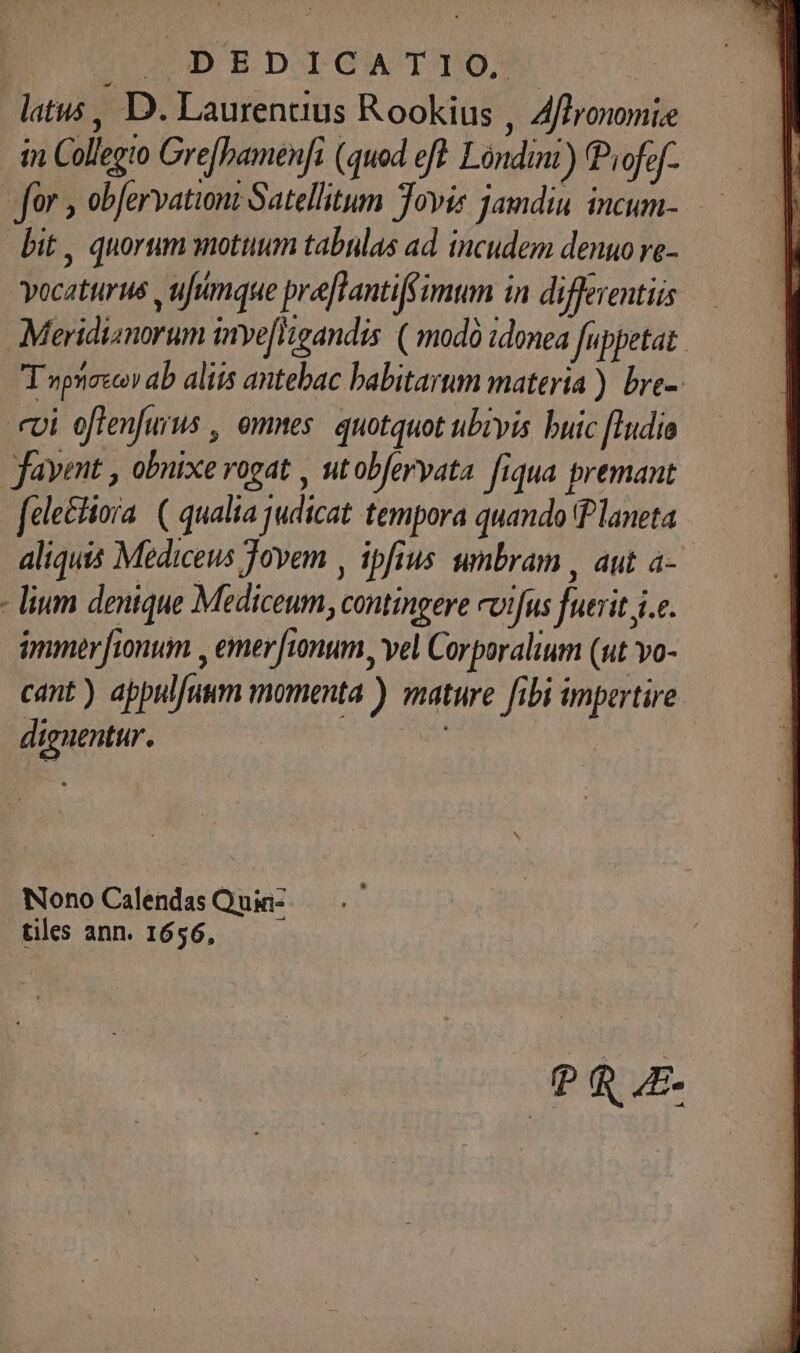 DEDICATIO.
latus, D. Laurentius Rookius, Aſtronomiæ
in Collegio Greſhamenſi (quod eſt Londini) Profeſ-
ſor, obſervationi Satellitum Jovis jamdiu incum-
bit, quorum motuum tabulas ad incudem denuo re-
vocaturus, uſúmque præſtantiſſimum in differentiis
Meridianorum inveſtigandis (modò idonea ſuppetat
Τηρήσεων ab aliis antehac habitarum materia) bre-
vi oſtenſurus, omnes quotquot ubivis huic ſtudio
favent, obnixe rogat, ut obſervata ſiqua premant
ſelectiora (qualia judicat tempora quando Planeta
aliquis Mediceus Jovem, ipſius umbram, aut a-
lium denique Mediceum, contingere viſus fuerit i.e.
immerſionum, emerſionum, vel Corporalium (ut vo-
cant) appulſuum momenta) mature ſibi impertire
dignentur.
Nono Calendas Quin-
tiles ann. 1656,
PRÆ-